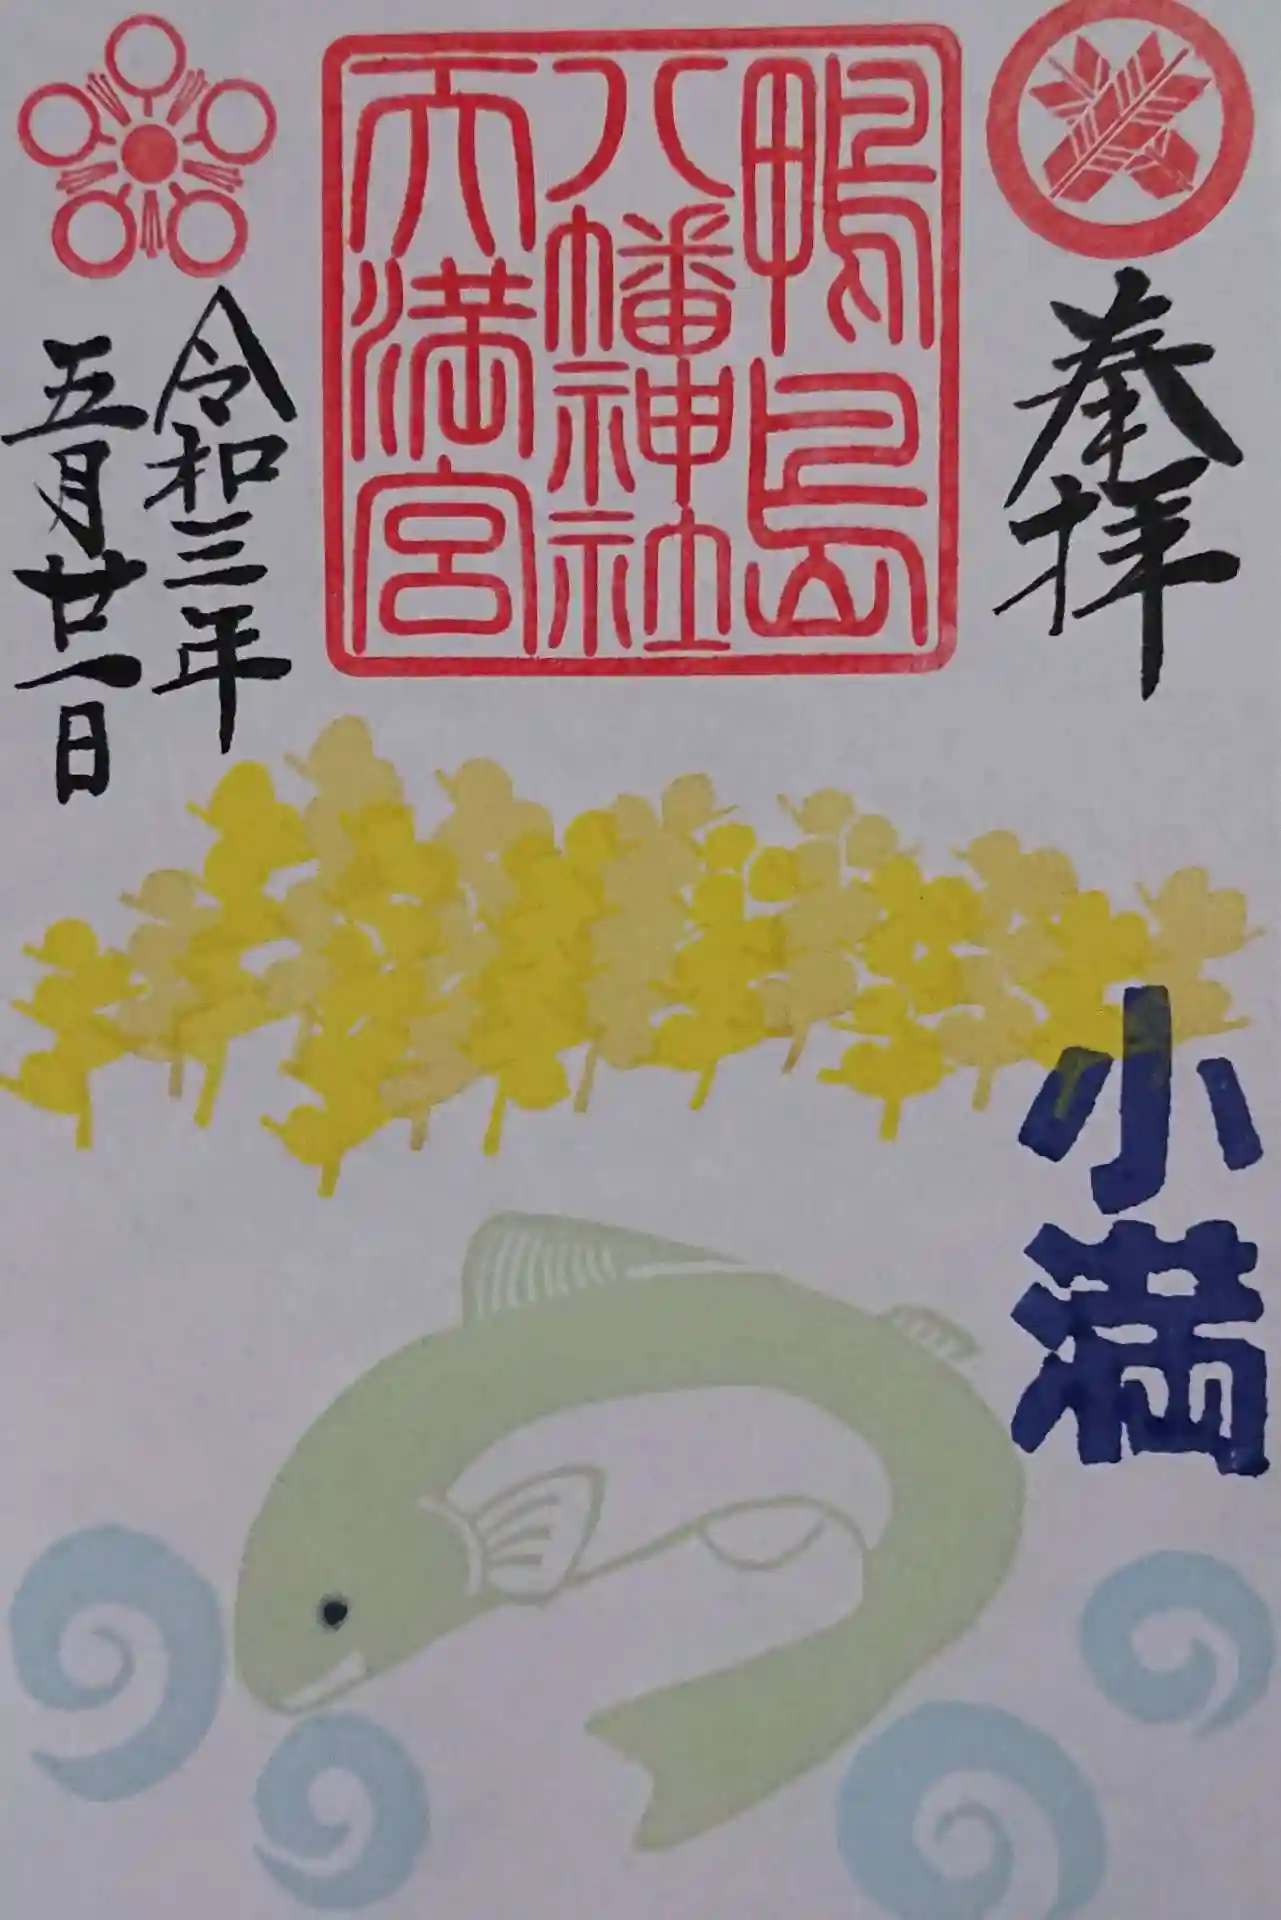 奉拝
鴨島
八幡神社
天満宮
令和三年
五月廿一日
小満